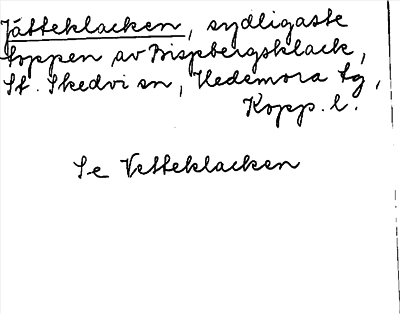 Jätteklacken, sydligaste
toppen av Bispbergsklack,
St. Skedvi sn, Hedemora tg,
Kopp. l.
Se Vetteklacken